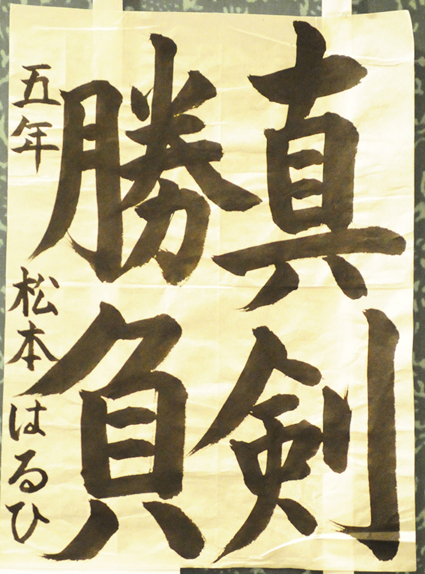 真剣
勝負
五年 松本はるひ